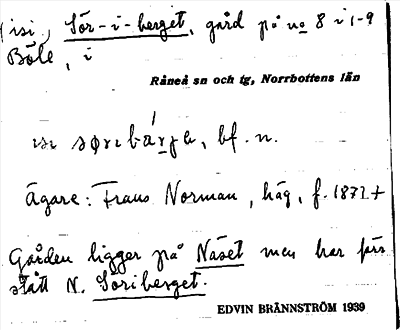 (isi, Sör-i-berget, gård på no 8 i 1-9
Böle, i
Råneå sn och tg, Norrbottens län
isi bf. n.
Ägare: Frans Norman, häg, f. 1872 +
Gården ligger på Näset men har förr
stått N. Soriberget.
EDVIN BRÄNNSTRÖM 1939